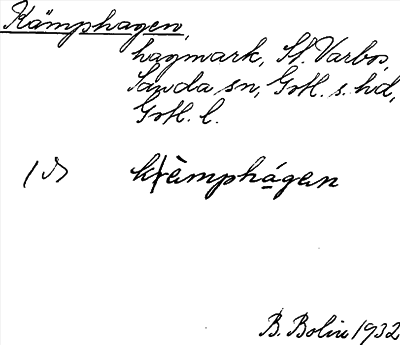 Kämphagen,
hagmark, St. Varbos,
Sanda sn, Gotl. s. hd,
Gotl. l.
kämphágen
B. Bolin 1932